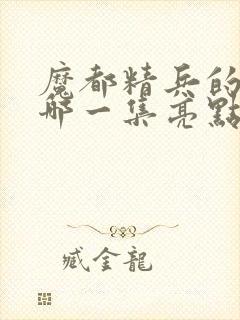 魔都精兵的
哪一集亮點
臧金龍